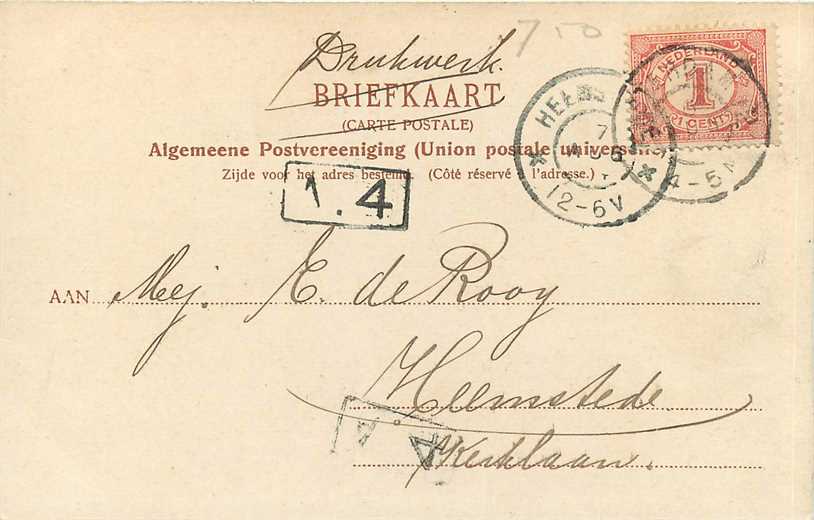 7 50
Drukwerk.
BRIEFKAART
(CARTE POSTALE)
Algemeene Postvereeniging (Union postale universelle)
Zijde voor het adres bestemd. (Côté réservé à l'adresse.)
NEDERLAND
1
CENT
7
12-6V
4-5N
1.4
AAN Mej. E. de Rooy
Heemstede
Kerklaan.
A